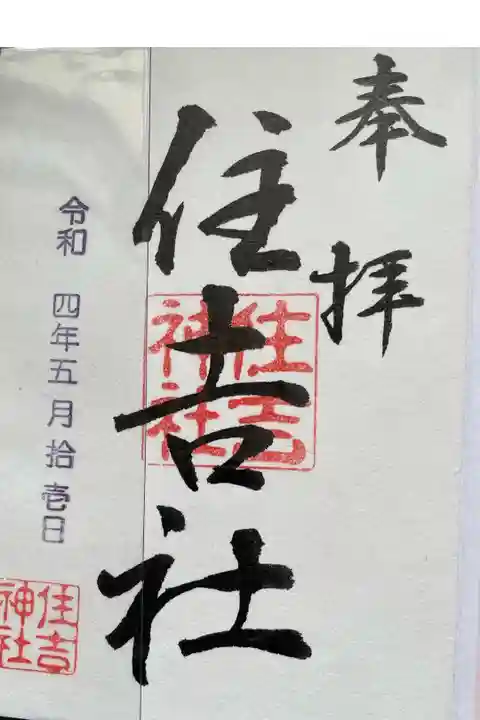 奉拝
住吉社
住吉神社
令和 四年五月拾壱日
住吉神社